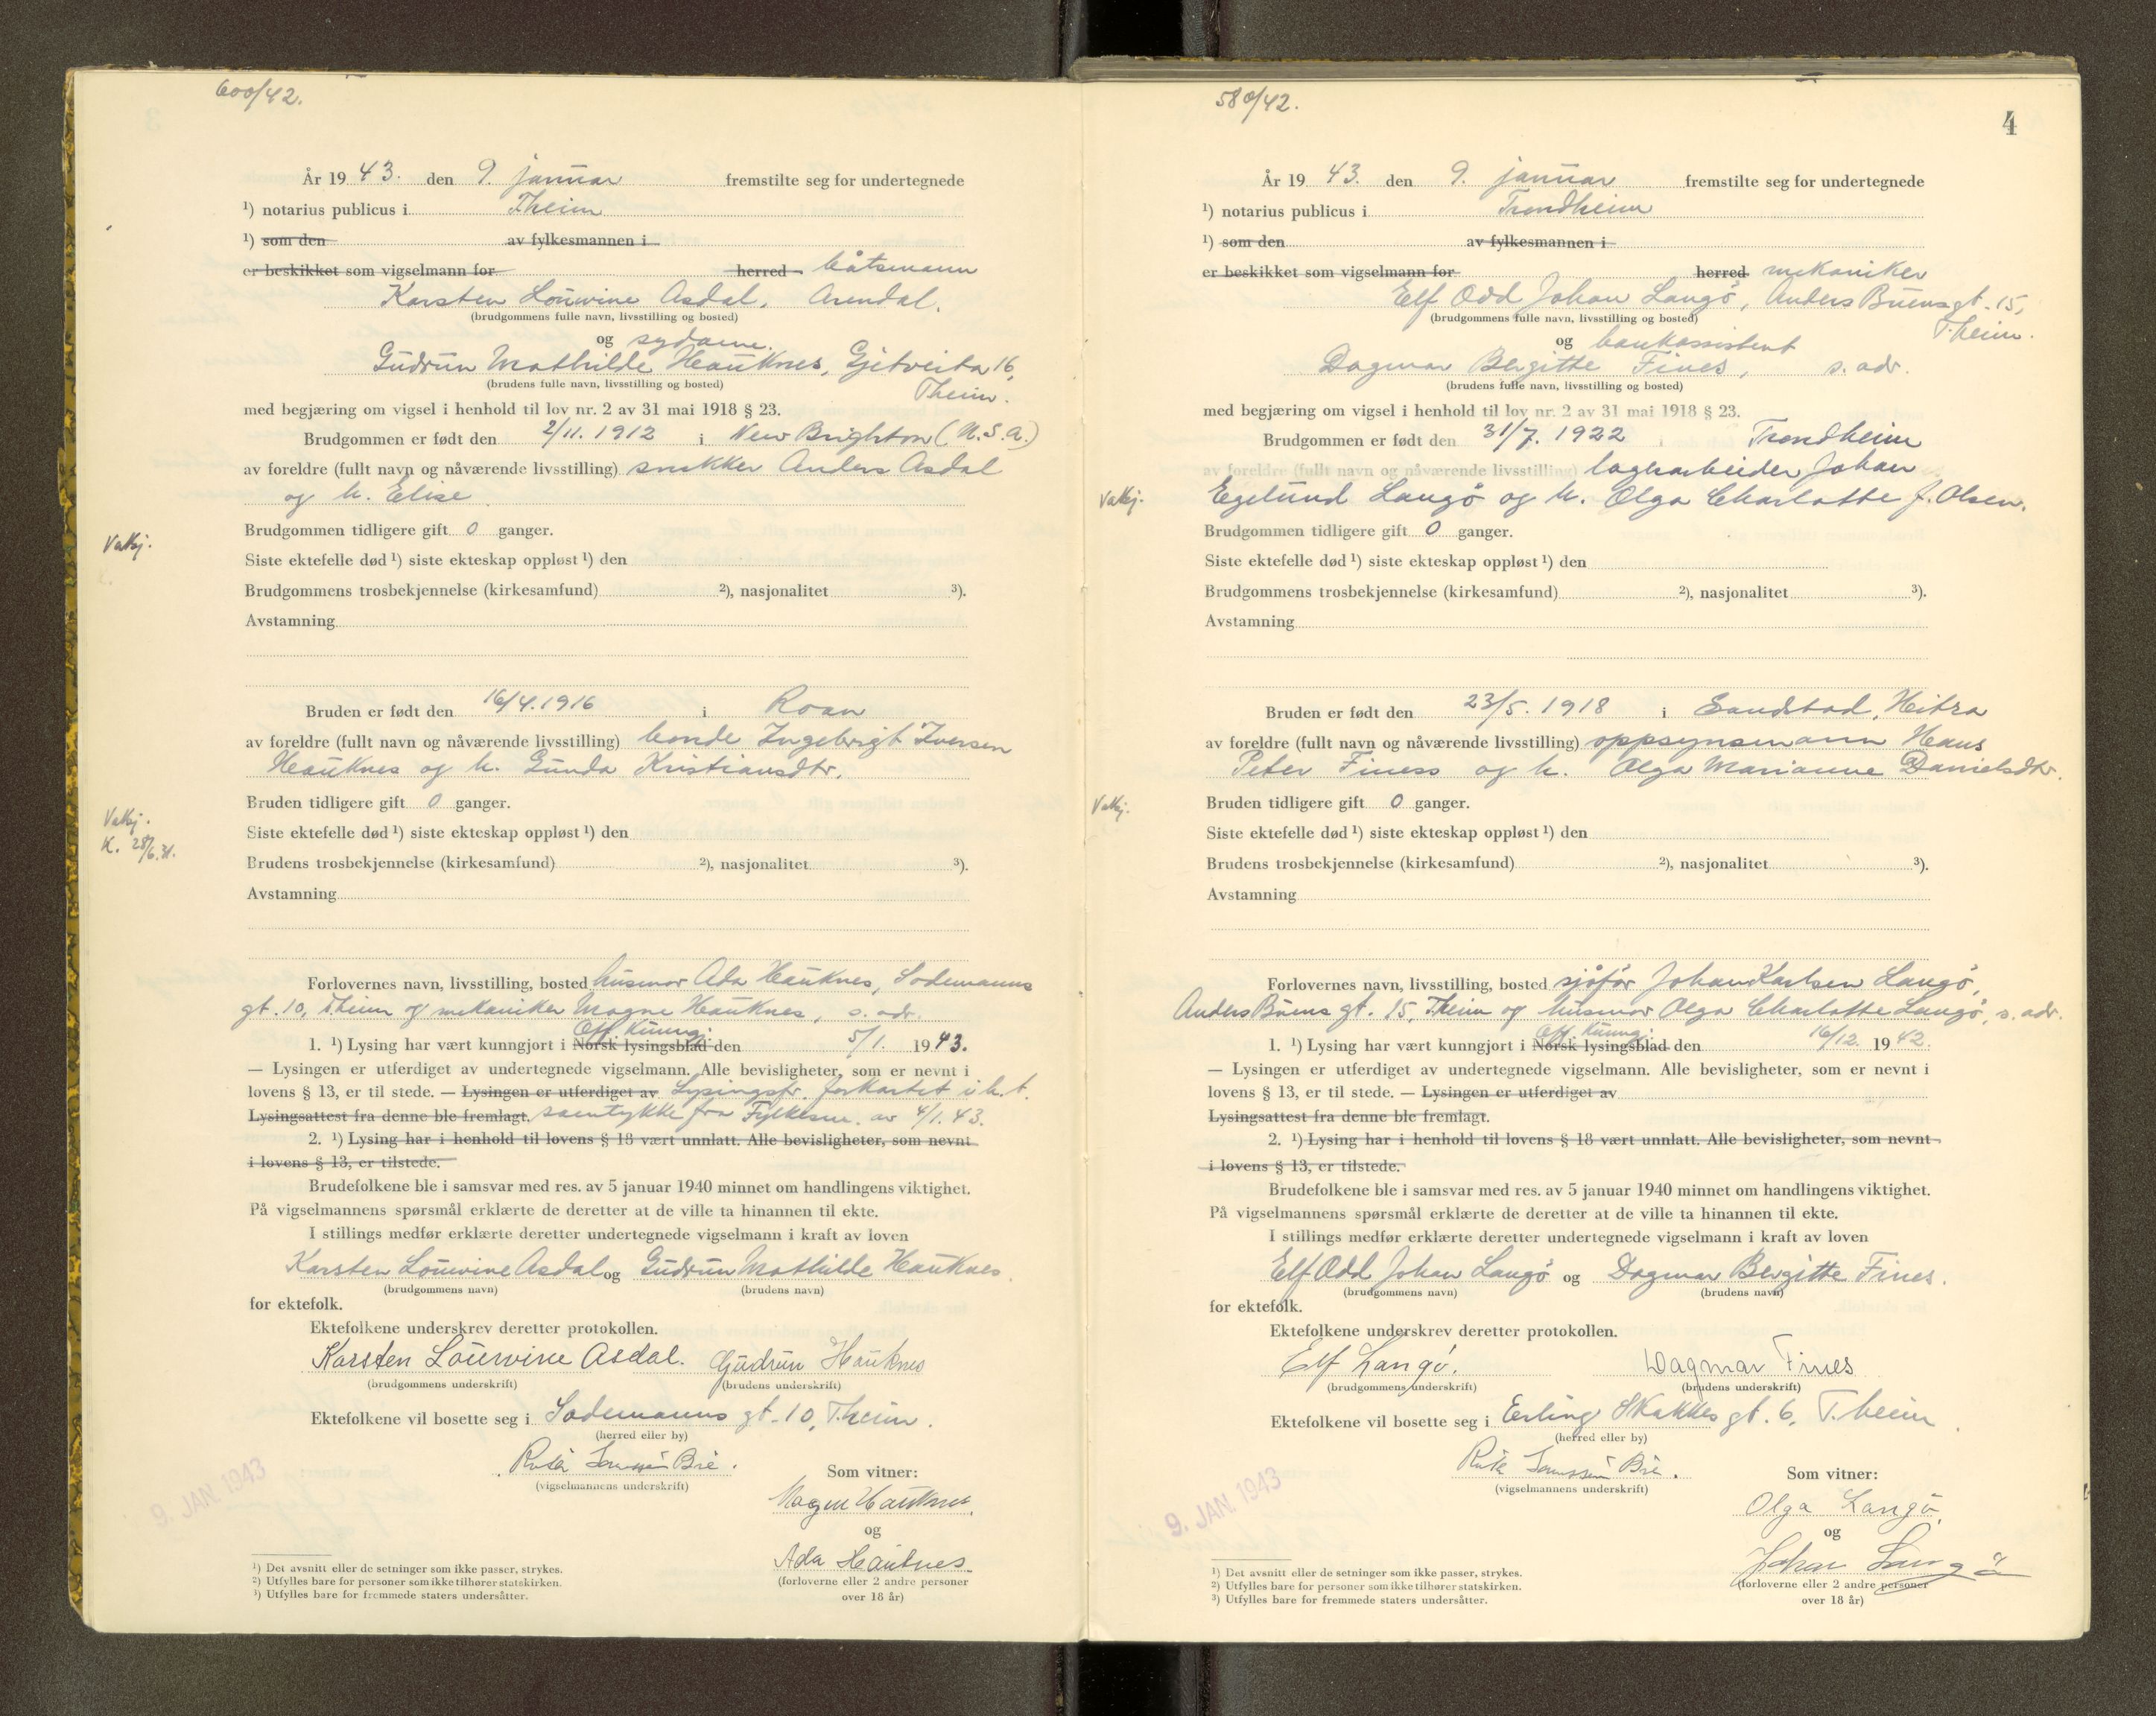 600/42.
År 19 43. den 9. januar fremstilte seg for undertegnede
¹) notarius publicus i T.heim
¹) som den av fylkesmannen i
er beskikket som vigselmann for herred båtsmann
Karsten Louwine Asdal, Arendal.
(brudgommens fulle navn, livsstilling og bosted)
og sydame
Gudrun Mathilde Hauknes, Gjetveita 16,
(brudens fulle navn, livsstilling og bosted) T.heim.
med begjæring om vigsel i henhold til lov nr. 2 av 31 mai 1918 § 23.
Brudgommen er født den 2/11. 1912 i New Brighton (U.S.A.)
av foreldre (fullt navn og nåværende livsstilling) snekker Anders Asdal
og h. Elise
Brudgommen tidligere gift 0 ganger.
Vakj.
Siste ektefelle død ¹) siste ekteskap oppløst ¹) den
Brudgommens trosbekjennelse (kirkesamfund) ²), nasjonalitet ³).
Avstamning
Bruden er født den 16/4. 1916 i Roan
av foreldre (fullt navn og nåværende livsstilling) bonde Ingebrigt Iversen
Hauknes og h. Gunda Kristiansdtr.
Bruden tidligere gift 0 ganger.
Vakj.
Siste ektefelle død ¹) siste ekteskap oppløst ¹) den
K. 28/6.31.
Brudens trosbekjennelse (kirkesamfund) ²), nasjonalitet ³).
Avstamning
Forlovernes navn, livsstilling, bosted husmor Ada Hauknes, Sodemanns
gt. 10, T.heim og mekaniker Magne Hauknes, s. adr.
Off. Kunngj.
1. ¹) Lysing har vært kunngjort i Norsk lysingsblad den 5/1. 19 43.
— Lysingen er utferdiget av undertegnede vigselmann. Alle bevisligheter, som er nevnt i
lovens § 13, er til stede. — Lysingen er utferdiget av Lysingsfr. forkortet i h. t.
Lysingsattest fra denne ble fremlagt. samtykke fra Fylkesm. av 4/1. 43.
2. ¹) Lysing har i henhold til lovens § 18 vært unnlatt. Alle bevisligheter, som nevnt
i lovens § 13, er tilstede.
Brudefolkene ble i samsvar med res. av 5 januar 1940 minnet om handlingens viktighet.
På vigselmannens spørsmål erklærte de deretter at de ville ta hinannen til ekte.
I stillings medfør erklærte deretter undertegnede vigselmann i kraft av loven
Karsten Louwine Asdal og Gudrun Mathilde Hauknes.
(brudgommens navn) (brudens navn)
for ektefolk.
Ektefolkene underskrev deretter protokollen.
Karsten Louwine Asdal. Gudrun Hauknes
(brudgommens underskrift) (brudens underskrift)
Ektefolkene vil bosette seg i Sodemanns gt. 10, T.heim.
(herred eller by)
(vigselmannens underskrift)
9. JAN. 1943
Som vitner:
Magne Hauknes
og
Ada Hauknes
(forloverne eller 2 andre personer
over 18 år)
¹) Det avsnitt eller de setninger som ikke passer, strykes.
²) Utfylles bare for personer som ikke tilhører statskirken.
³) Utfylles bare for fremmede staters undersåtter.
580/42.
4
År 19 43. den 9. januar fremstilte seg for undertegnede
¹) notarius publicus i Trondheim
¹) som den av fylkesmannen i
er beskikket som vigselmann for herred mekaniker
Elf Odd Johan Langö, Anders Buens gt. 15,
(brudgommens fulle navn, livsstilling og bosted) T.heim.
og bankassistent
Dagmar Bergitte Fines, s. adr.
(brudens fulle navn, livsstilling og bosted)
med begjæring om vigsel i henhold til lov nr. 2 av 31 mai 1918 § 23.
Brudgommen er født den 31/7. 1922 i Trondheim
av foreldre (fullt navn og nåværende livsstilling) lagerarbeider Johan
Vakj.
Egelund Langö og h. Olga Charlotte f. Olsen.
Brudgommen tidligere gift 0 ganger.
Siste ektefelle død ¹) siste ekteskap oppløst ¹) den
Brudgommens trosbekjennelse (kirkesamfund) ²), nasjonalitet ³).
Avstamning
Bruden er født den 23/5. 1918 i Sandstad, Hitra
av foreldre (fullt navn og nåværende livsstilling) oppsynsmann Hans
Peter Finess og h. Olga Marianne Danielsdtr.
Vakj.
Bruden tidligere gift 0 ganger.
Siste ektefelle død ¹) siste ekteskap oppløst ¹) den
Brudens trosbekjennelse (kirkesamfund) ²), nasjonalitet ³).
Avstamning
Forlovernes navn, livsstilling, bosted sjåfør Johan Karlsen Langö,
Anders Buens gt. 15, T.heim og husmor Olga Charlotte Langö, s. adr.
Off. Kunngj.
1. ¹) Lysing har vært kunngjort i Norsk lysingsblad den 16/12. 19 42.
— Lysingen er utferdiget av undertegnede vigselmann. Alle bevisligheter, som er nevnt i
lovens § 13, er til stede. — Lysingen er utferdiget av
Lysingsattest fra denne ble fremlagt.
2. ¹) Lysing har i henhold til lovens § 18 vært unnlatt. Alle bevisligheter, som nevnt
i lovens § 13, er tilstede.
Brudefolkene ble i samsvar med res. av 5 januar 1940 minnet om handlingens viktighet.
På vigselmannens spørsmål erklærte de deretter at de ville ta hinannen til ekte.
I stillings medfør erklærte deretter undertegnede vigselmann i kraft av loven
Elf Odd Johan Langö og Dagmar Bergitte Fines.
(brudgommens navn) (brudens navn)
for ektefolk.
Ektefolkene underskrev deretter protokollen.
Elf Langö. Dagmar Fines
(brudgommens underskrift) (brudens underskrift)
Ektefolkene vil bosette seg i Erling Skakkes gt. 6, T.heim
(herred eller by)
(vigselmannens underskrift)
9. JAN. 1943
Som vitner:
Olga Langö
og
Johan Langö
(forloverne eller 2 andre personer
over 18 år)
¹) Det avsnitt eller de setninger som ikke passer, strykes.
²) Utfylles bare for personer som ikke tilhører statskirken.
³) Utfylles bare for fremmede staters undersåtter.